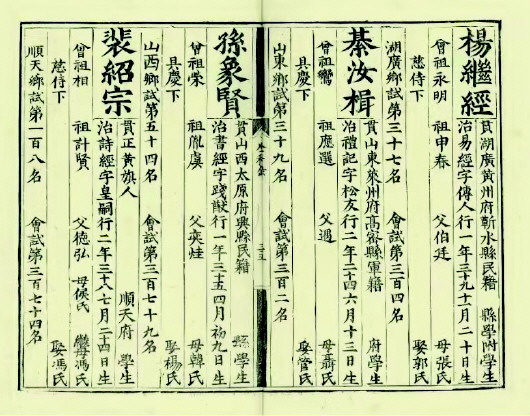 楊繼經
貫湖廣黃州府蘄水縣民籍 縣學附學生
治易經字傳人行一年三十九十一月二十日生
曾祖永明 祖申春 父伯廷 母張氏
慈侍下 娶郭氏
湖廣鄉試第三十七名 會試第三百四名
綦汝楫
貫山東萊州府高密縣軍籍 府學生
治禮記字松友行二年二十四六月十三日生
曾祖鸞 祖應選 父遇 母聶氏
具慶下 娶管氏
山東鄉試第三十九名 會試第三百二名
孫象賢
貫山西太原府興縣民籍 縣學生
治書經字踐猷行一年三十五四月初九日生
曾祖榮 祖胤虞 父奕烓 母韓氏
具慶下 娶楊氏
山西鄉試第五十四名 會試第三百七十九名
裴紹宗
貫正黃旗人 順天府學生
治詩經字皇嗣行二年三十八七月二十四日生
曾祖相 祖計賢 父德弘 母侯氏 繼母馮氏
慈侍下 娶馮氏
順天鄉試第一百八名 會試第三百七十四名